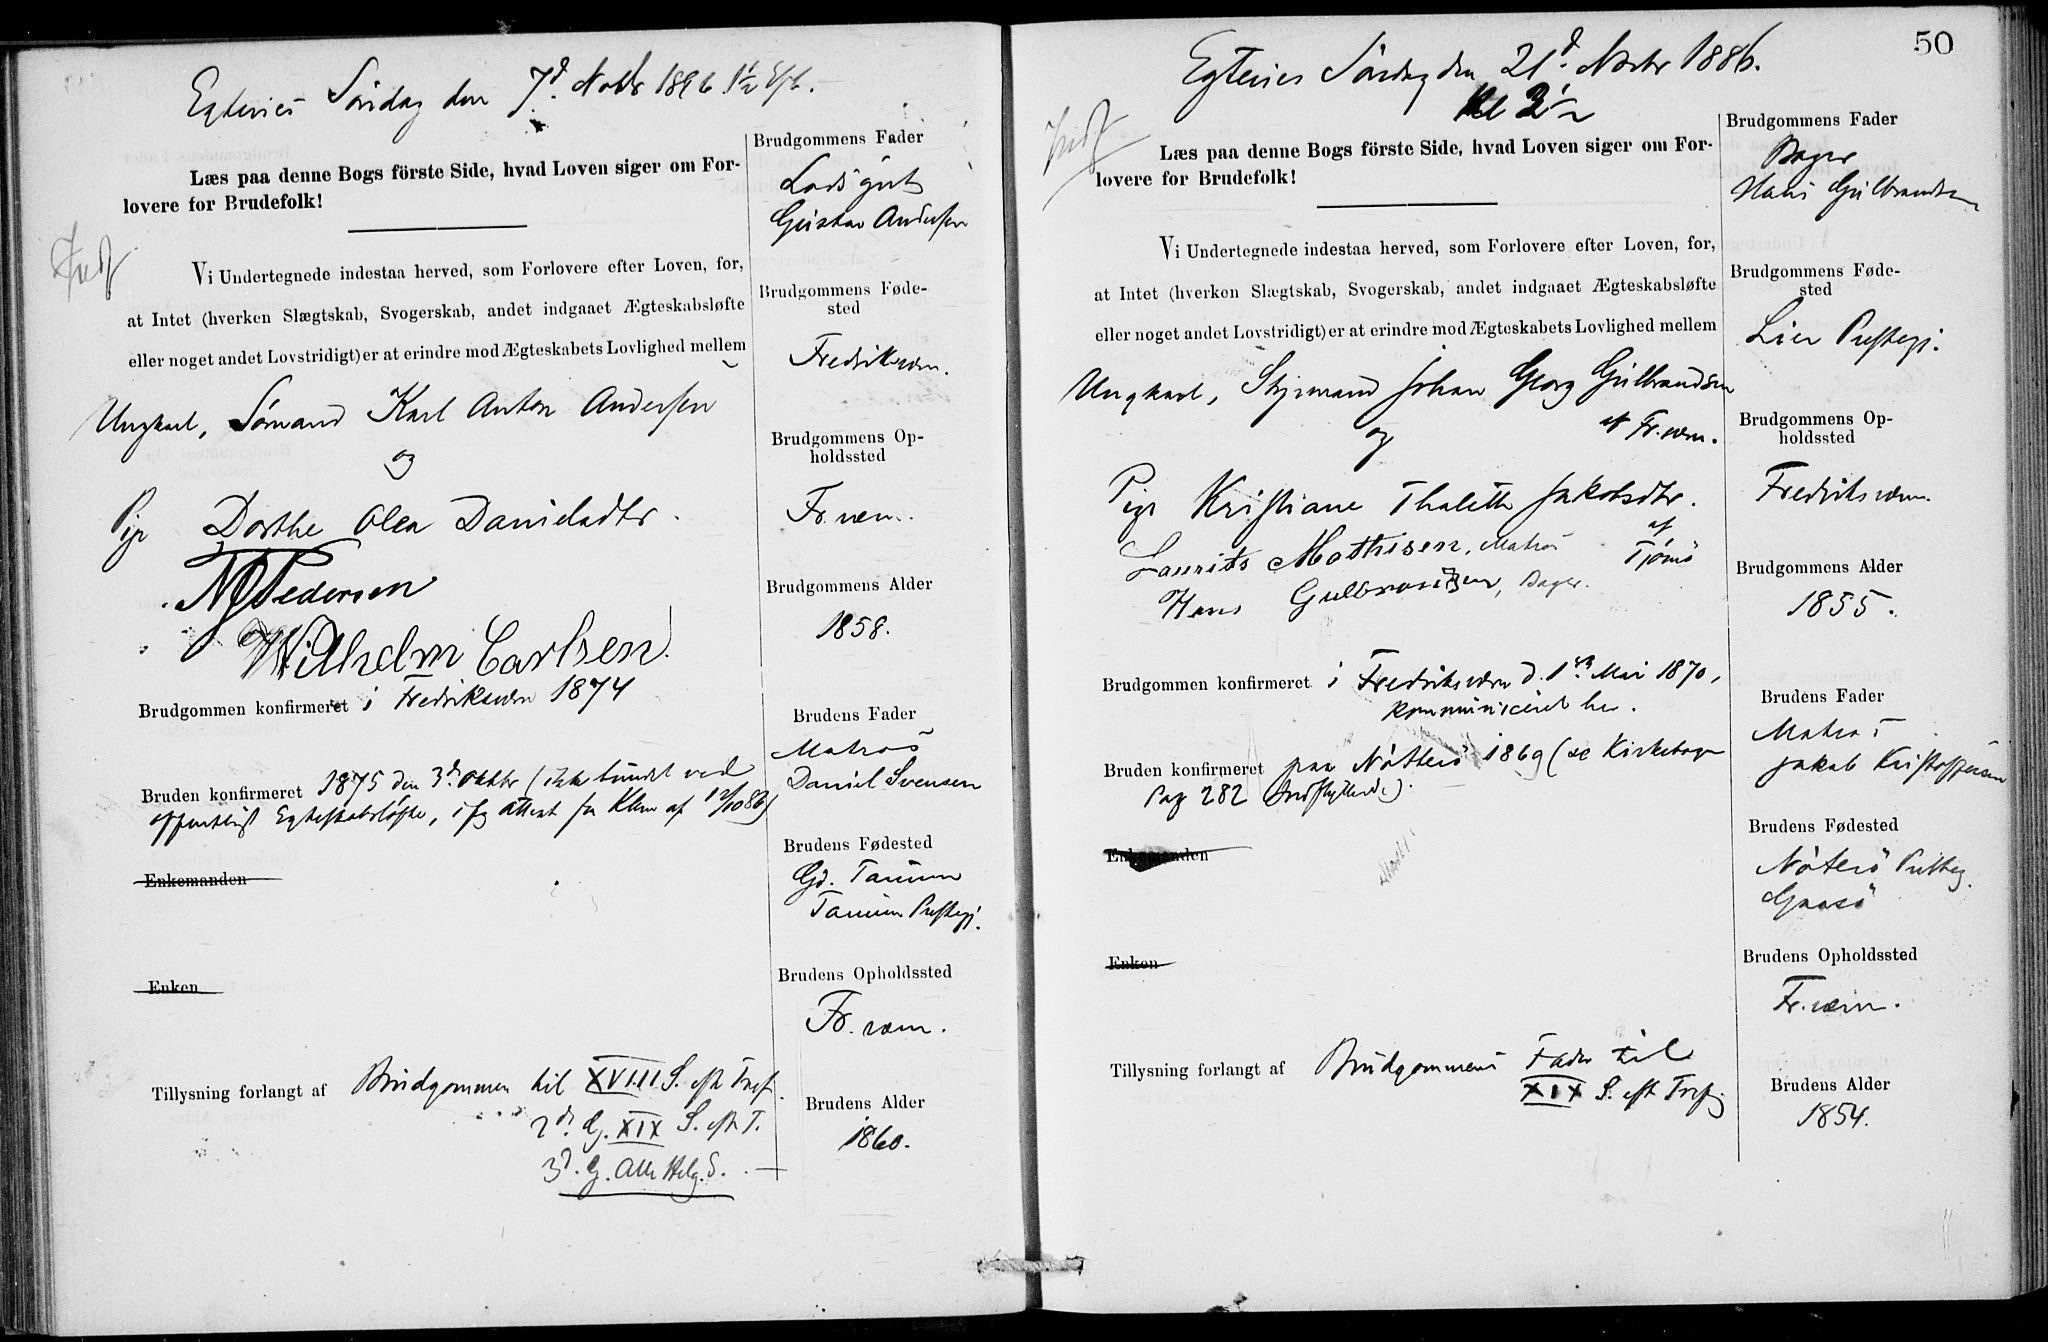 Egtevies Søndag den 7d. Novbr 1886 1½
Brudgommens Fader
Læs paa denne Bogs förste Side, hvad Loven siger om For-
lovere for Brudefolk!
Lodsgut
Gustav Andersen
Indf
Vi Undertegnede indestaa herved, som Forlovere efter Loven, for,
at Intet (hverken Slægtskab, Svogerskab, andet indgaaet Ægteskabsløfte
eller noget andet Lovstridigt) er at erindre mod Ægteskabets Lovlighed mellem
Brudgommens Føde-
sted
Fredriksværn.
Ungkarl, Sømand Karl Anton Andersen
og
Pige Dorthe Olea Danielsdtr.
Brudgommens Op-
holdssted
Fr.værn.
Pedersen
Wilhelm Carlsen.
Brudgommens Alder
1858.
Brudgommen konfirmeret i Fredriksværn 1874
Brudens Fader
Matros
Daniel Svensen
Bruden konfirmeret 1875 den 3d Oktbr (ikke bundet ved
offentligt Egteskabsløfte, ifg Attest fra Klkr af 12/10 86)
Brudens Fødested
Gd. Tanum
Tanum Prestegj.
Enkemanden
Enken
Brudens Opholdssted
Fr. værn.
Tillysning forlangt af Brudgommen til XVIII S. eft Tref.
2d. G. XIX S. eft T.
3d. G. Alle Helg. S.
Brudens Alder
1860.
50
Egtevies Søndag den 21d. Novbr 1886.
Kl 3½
Indf
Brudgommens Fader
Bager
Hans Gulbrandsen
Læs paa denne Bogs förste Side, hvad Loven siger om For-
lovere for Brudefolk!
Vi Undertegnede indestaa herved, som Forlovere efter Loven, for,
at Intet (hverken Slægtskab, Svogerskab, andet indgaaet Ægteskabsløfte
eller noget andet Lovstridigt) er at erindre mod Ægteskabets Lovlighed mellem
Brudgommens Føde-
sted
Lier Prestegj.
Ungkarl, Styrmand Johan Georg Gulbrandsen
af Fr.værn.
og
Pige Kristiane Thalette Jakobsdtr.
af
Tjømö
Brudgommens Op-
holdssted
Fredriksværn.
Laurits Mathisen, Matros
Hans Gulbrandsen, Bager.
Brudgommens Alder
1855.
Brudgommen konfirmeret i Fredriksværn d. 1ste Mai 1870,
kommuniceret her.
Brudens Fader
Matros
Jakob Kristoffersen
Bruden konfirmeret paa Nötterö 1869 (se Kirkebogen
Pag 282 Indflyttede).
Brudens Fødested
Nöterö Presteg.
Gaasö
Enkemanden
Enken
Brudens Opholdssted
Fr.værn.
Tillysning forlangt af Brudgommens Fader til
XIX S. eft Tref
Brudens Alder
1854.